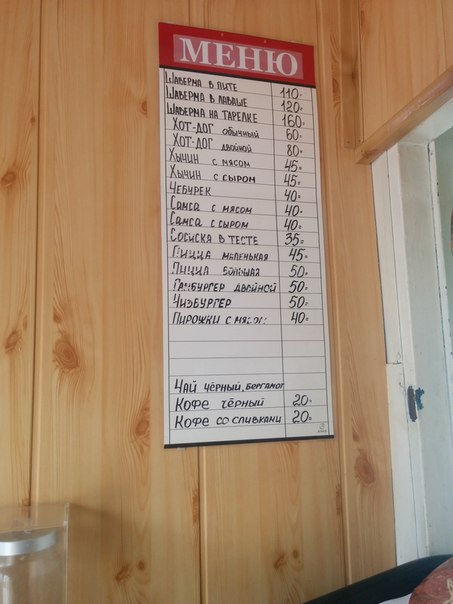 МЕНЮ
ШАВЕРМА В ПИТЕ 110=
ШАВЕРМА В ЛАВАШЕ 120=
ШАВЕРМА НА ТАРЕЛКЕ 160=
ХОТ-ДОГ ОБЫЧНЫЙ 60=
ХОТ-ДОГ ДВОЙНОЙ 80=
ХЫЧИН С МЯСОМ 45=
ХЫЧИН С СЫРОМ 45=
ЧЕБУРЕК 40=
САМСА С МЯСОМ 40=
САМСА С СЫРОМ 40=
СОСИСКА В ТЕСТЕ 35=
ПИЦЦА МАЛЕНЬКАЯ 45=
ПИЦЦА БОЛЬШАЯ 50=
ГАМБУРГЕР ДВОЙНОЙ 50=
ЧИЗБУРГЕР 50=
ПИРОЖКИ С 40=
ЧАЙ ЧЁРНЫЙ, БЕРГАМОТ
КОФЕ ЧЁРНЫЙ 20=
КОФЕ СО СЛИВКАМИ 20=